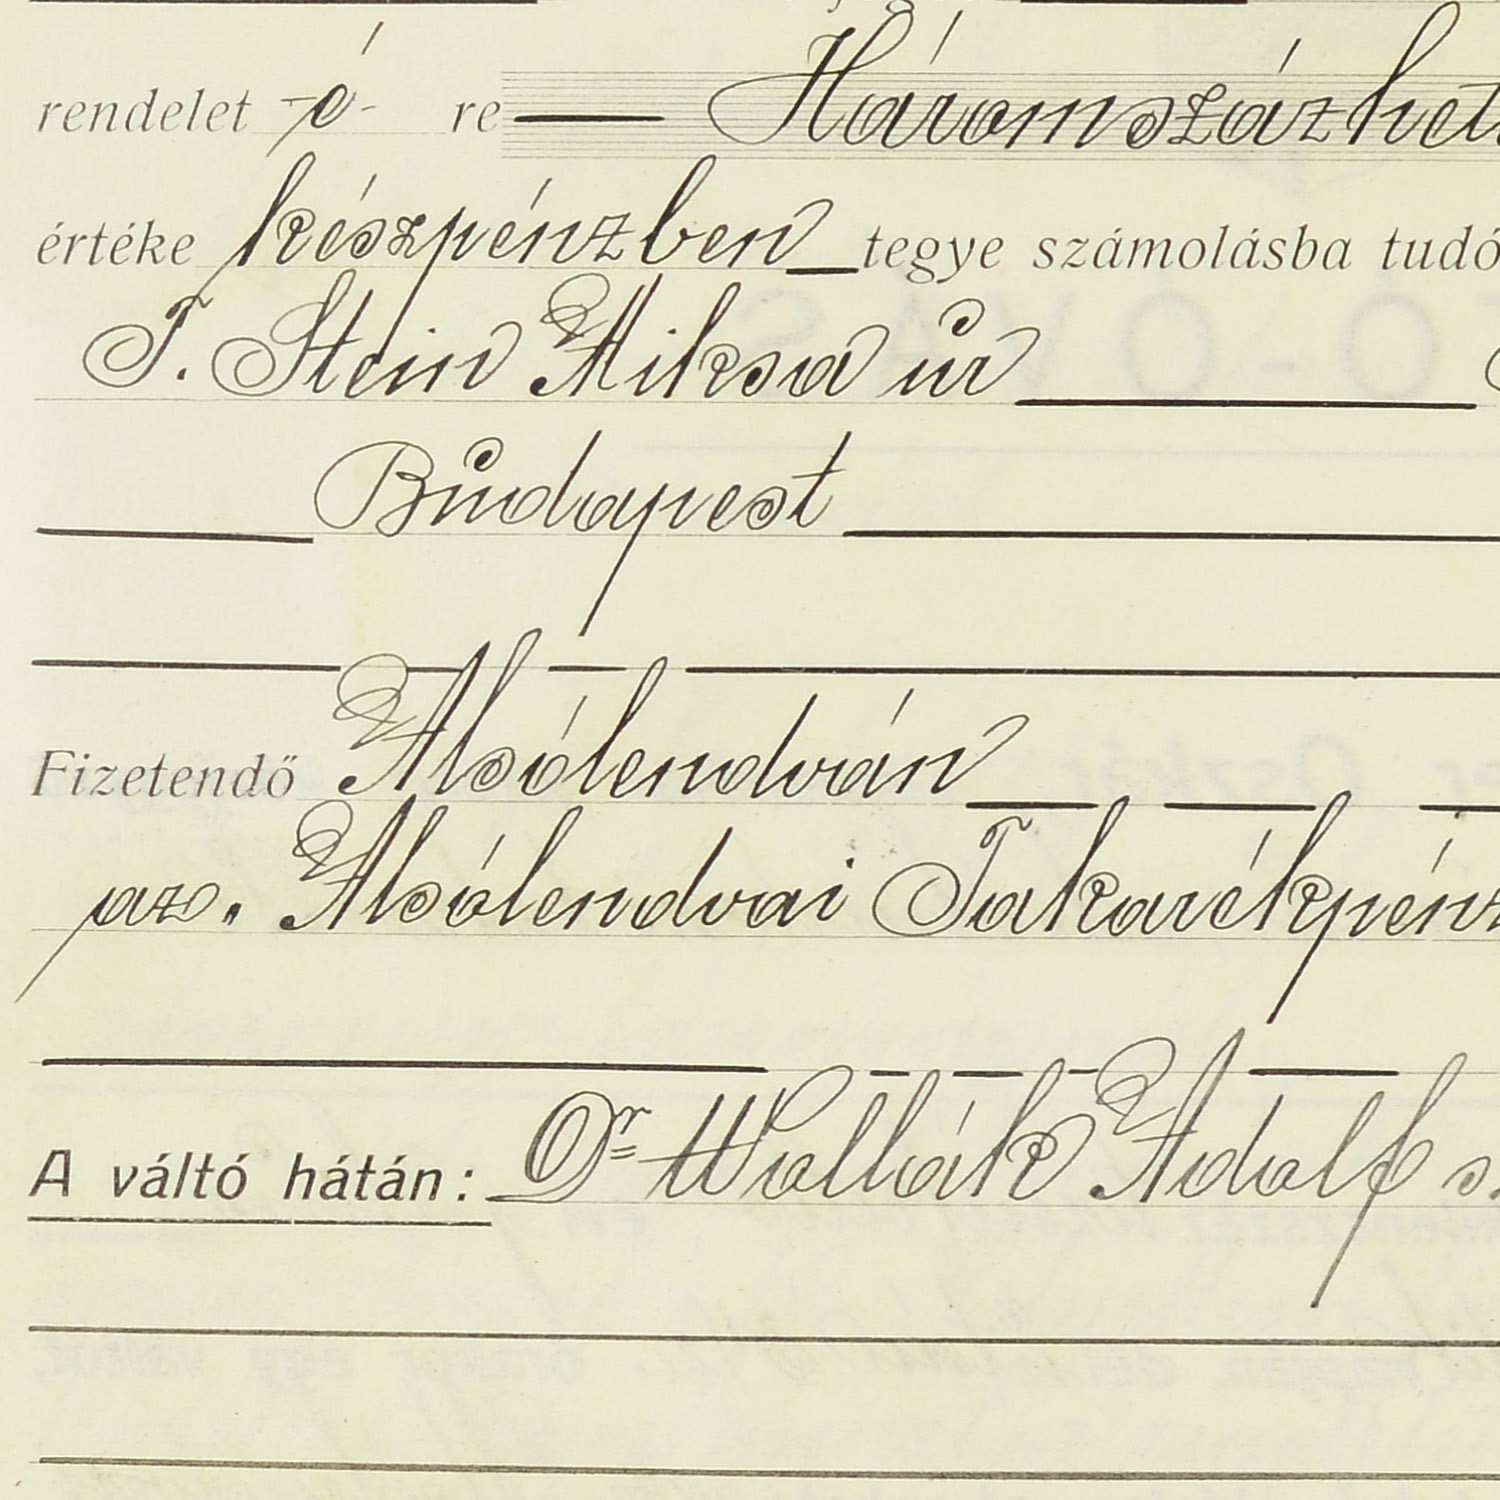 rendelet -ó- re — Háromszázhet
értéke készpénzben tegye számolásba tudó
T. Stein Miksa úr
Budapest
Fizetendő Alsólendván
az. Alsólendvai Takarékpénz
A váltó hátán: Dr Wollák Adolf s.